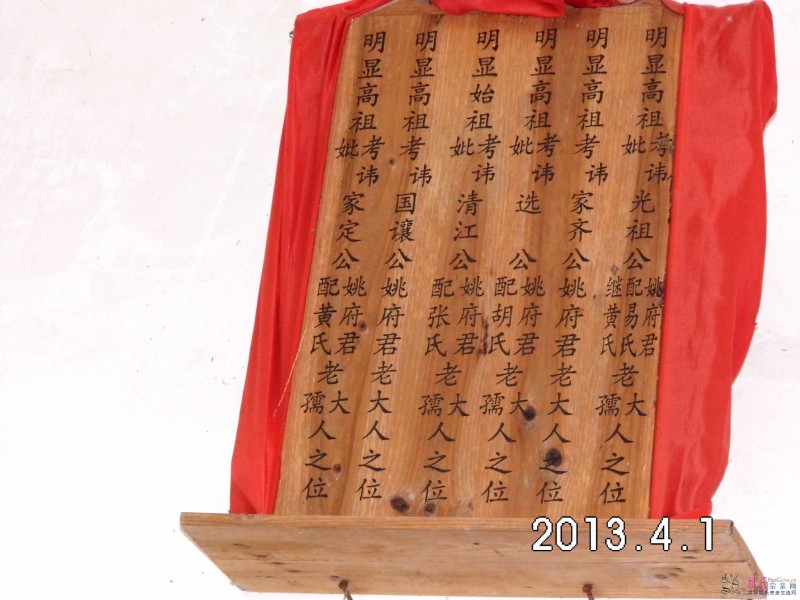 明显高祖考妣讳光祖公姚府君配易氏继黄氏老大孺人之位
明显高祖考讳家齐公姚府君老大人之位
明显高祖考妣讳选公姚府君配胡氏老大孺人之位
明显始祖考妣讳清江公姚府君配张氏老大孺人之位
明显高祖考讳国让公姚府君老大人之位
明显高祖考妣讳家定公姚府君配黄氏老大孺人之位
2013.4.1